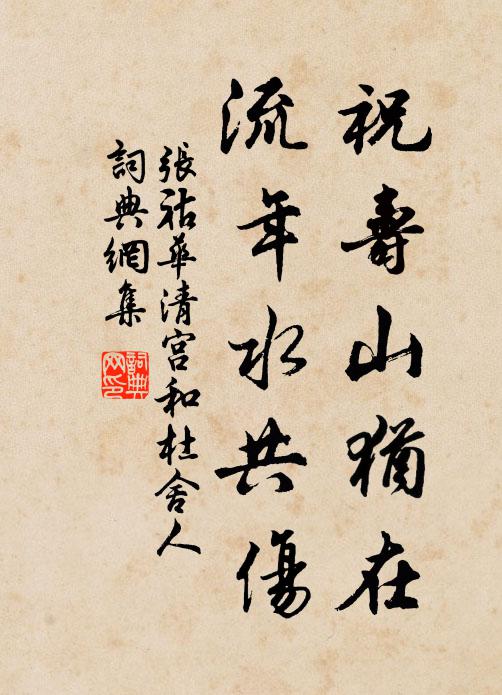 祝壽山猶在
流年水共傷
張祜華清宮和杜舍人
詞典網集
詞典網印